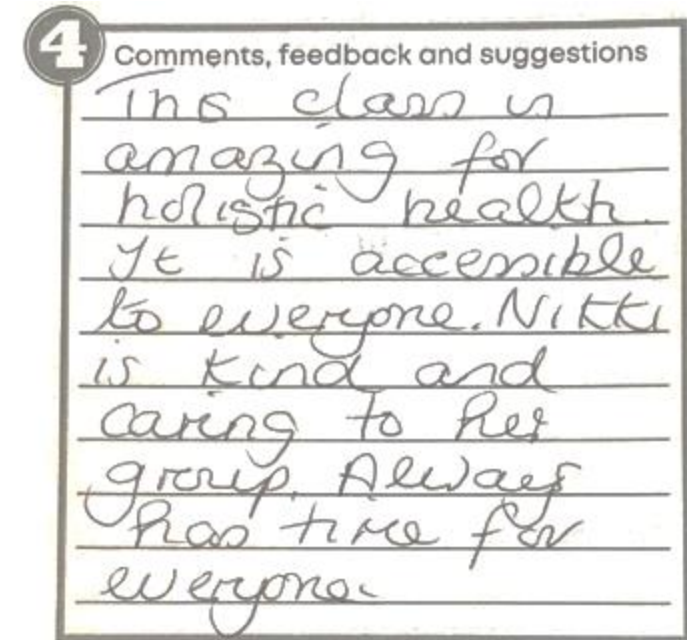 4
Comments, feedback and suggestions
This class is
amazing for
holistic health.
It is accessible
to everyone. Nikki
is kind and
caring to her
group. Always
has time for
everyone.